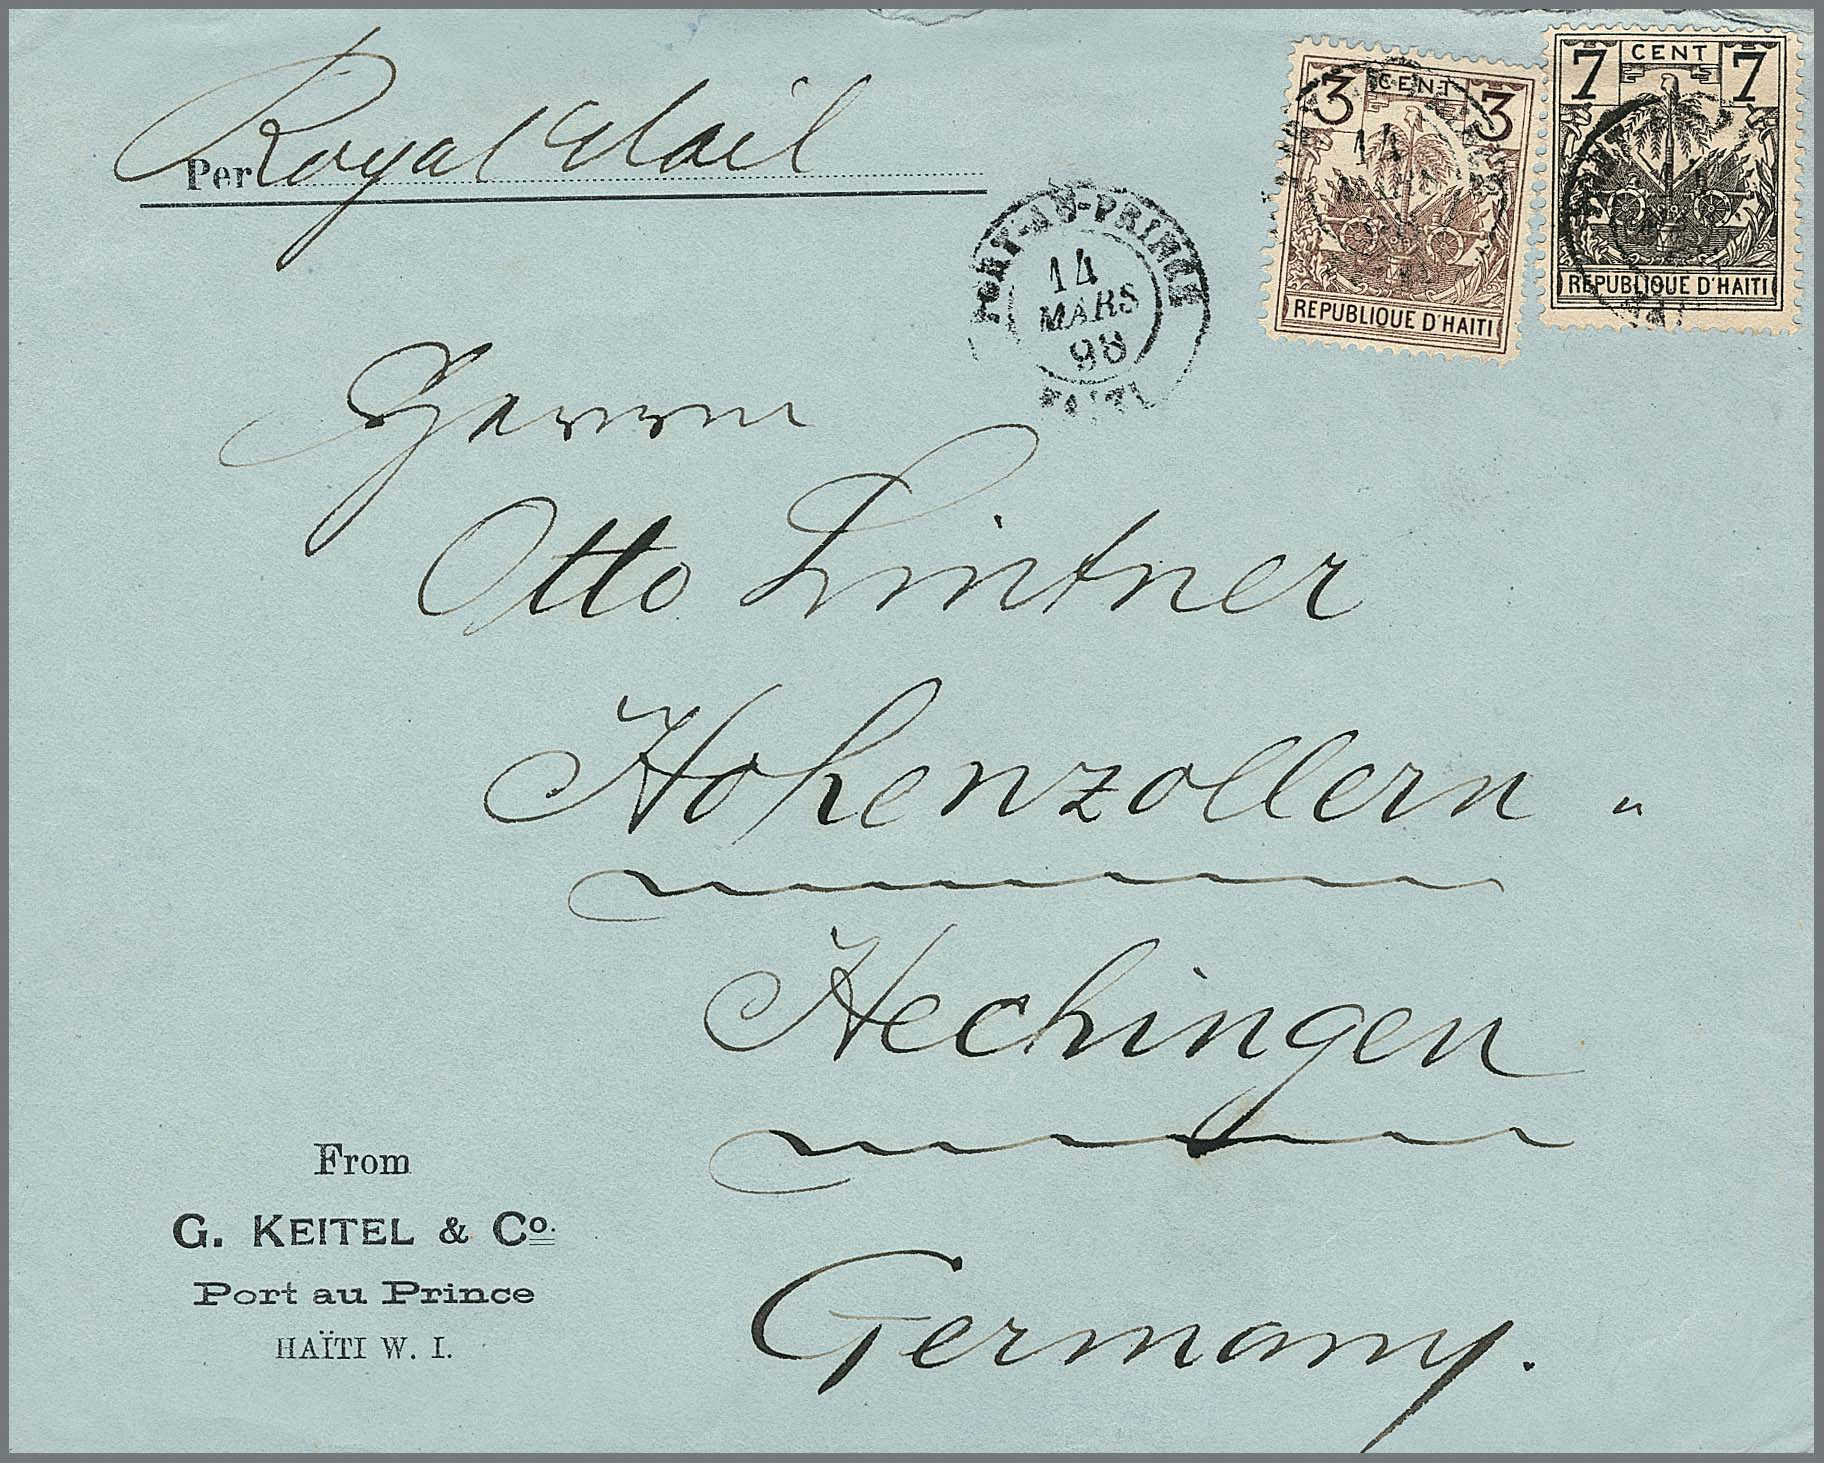 Per Royal Mail
3 CENT 3
REPUBLIQUE D'HAITI
7 CENT 7
REPUBLIQUE D'HAITI
PORT-AU-PRINCE
14
MARS
98
HAITI
14
Herrn
Otto Lintner
Hohenzollern "
Hechingen
Germany.
From
G. KEITEL & Co.
Port au Prince
HAÏTI W. I.